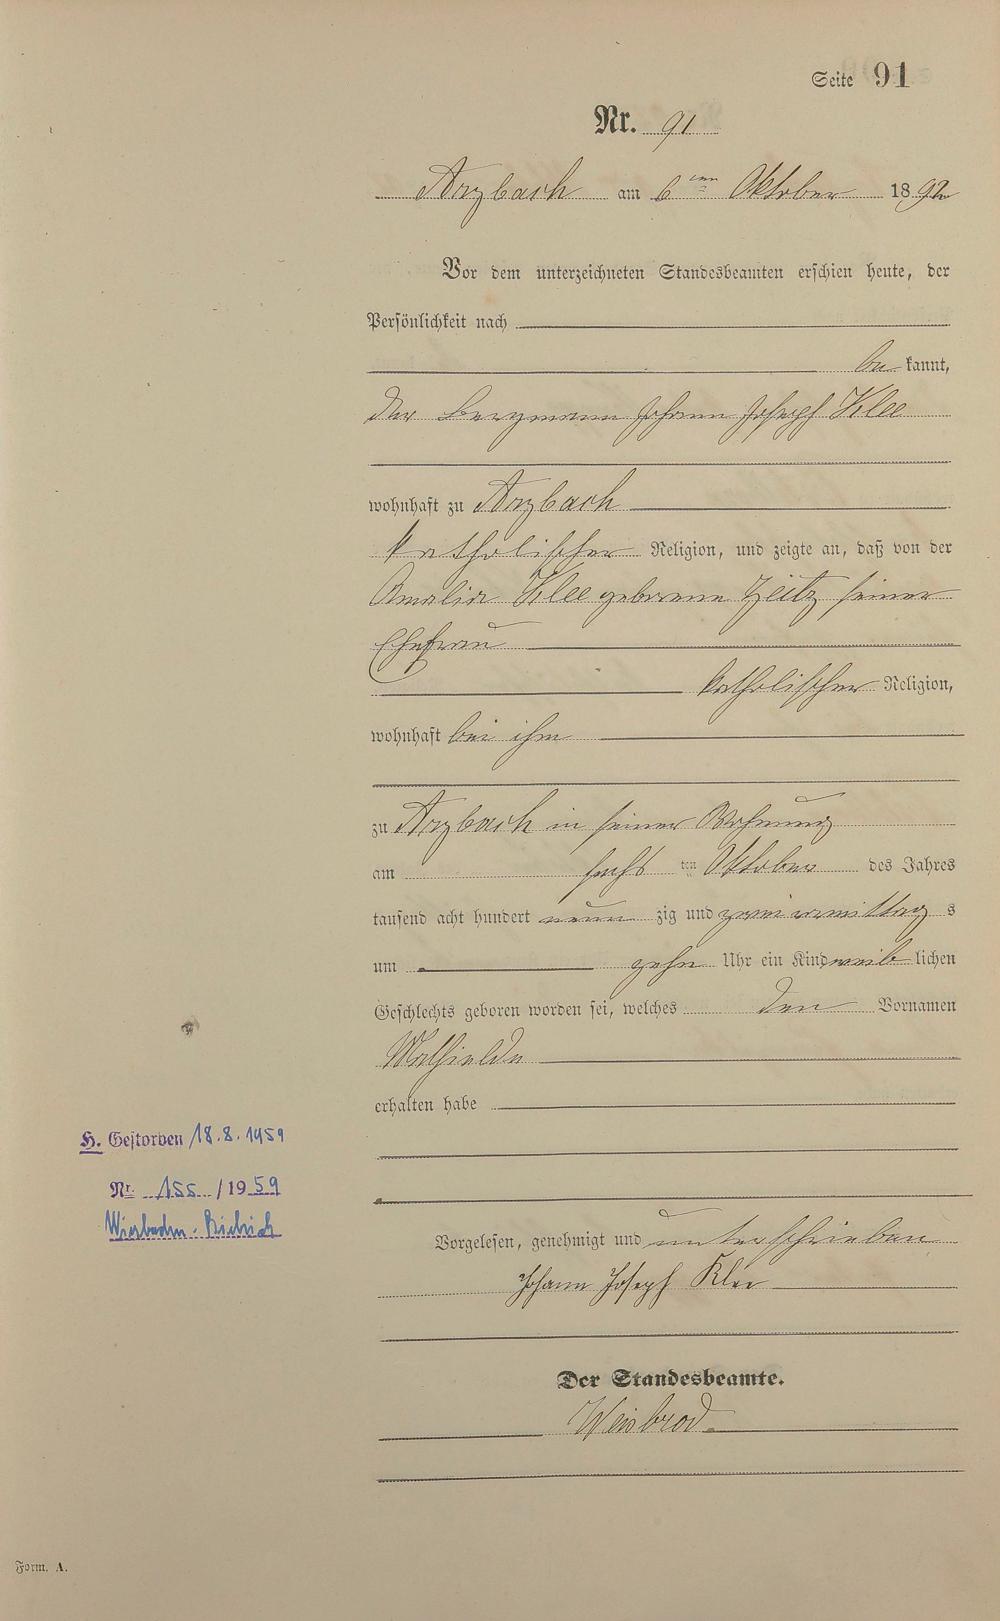 Seite 91
Nr. 91
Arzbach am 6ten Oktober 1892
Vor dem unterzeichneten Standesbeamten erschien heute, der
Persönlichkeit nach
be kannt,
der Bergmann Johann Joseph Klee
wohnhaft zu Arzbach
katholischer Religion, und zeigte an, daß von der
Amalia Klee geborene Zeitz seiner
Ehefrau
katholischer Religion,
wohnhaft bei ihm
zu Arzbach in seiner Wohnung
am sechsten Oktober des Jahres
tausend acht hundert neun zig und zwei vormittags
um zehn Uhr ein Kind weiblichen
Geschlechts geboren worden sei, welches den Vornamen
Mathielde
erhalten habe
H. Gestorben 18.8.1959
Nr. 155 / 1959
Wiesbaden-Biebrich
Vorgelesen, genehmigt und unterschrieben
Johann Joseph Klee
Der Standesbeamte.
Weisbrod
Form. A.